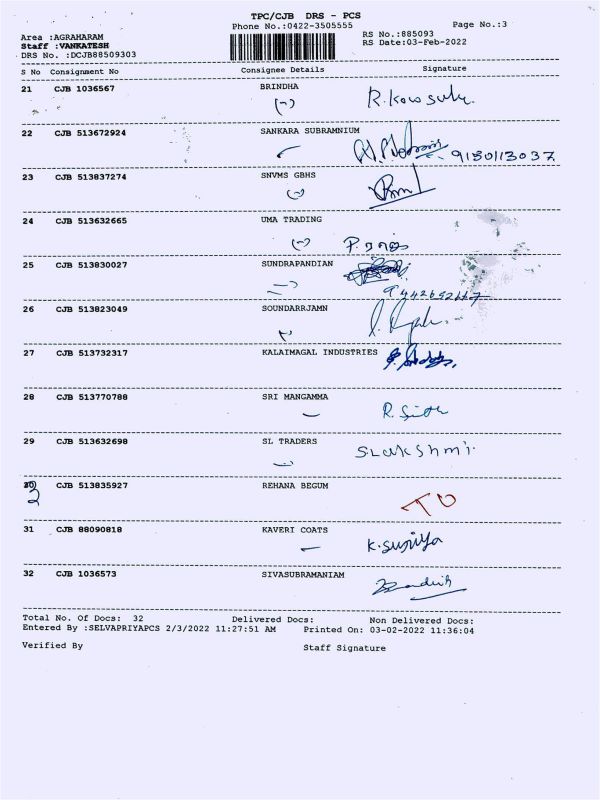 TPC/CJB DRS - PCS
Phone No.:0422-3505555
Page No.:3
Area :AGRAHARAM
RS No.:885093
Staff :VANKATESH
RS Date:03-Feb-2022
DRS No. :DCJB88509303
S No Consignment No Consignee Details Signature
21 CJB 1036567 BRINDHA
22 CJB 513672924 SANKARA SUBRAMNIUM
9150113037
23 CJB 513837274 SNVMS GBHS
24 CJB 513632665 UMA TRADING
25 CJB 513830027 SUNDRAPANDIAN
26 CJB 513823049 SOUNDARRJAMN
27 CJB 513732317 KALAIMAGAL INDUSTRIES
28 CJB 513770788 SRI MANGAMMA
29 CJB 513632698 SL TRADERS
S.Lakshmi.
30 CJB 513835927 REHANA BEGUM
31 CJB 88090818 KAVERI COATS
K.Supriya
32 CJB 1036573 SIVASUBRAMANIAM
Total No. Of Docs: 32 Delivered Docs: Non Delivered Docs:
Entered By :SELVAPRIYAPCS 2/3/2022 11:27:51 AM Printed On: 03-02-2022 11:36:04
Verified By Staff Signature